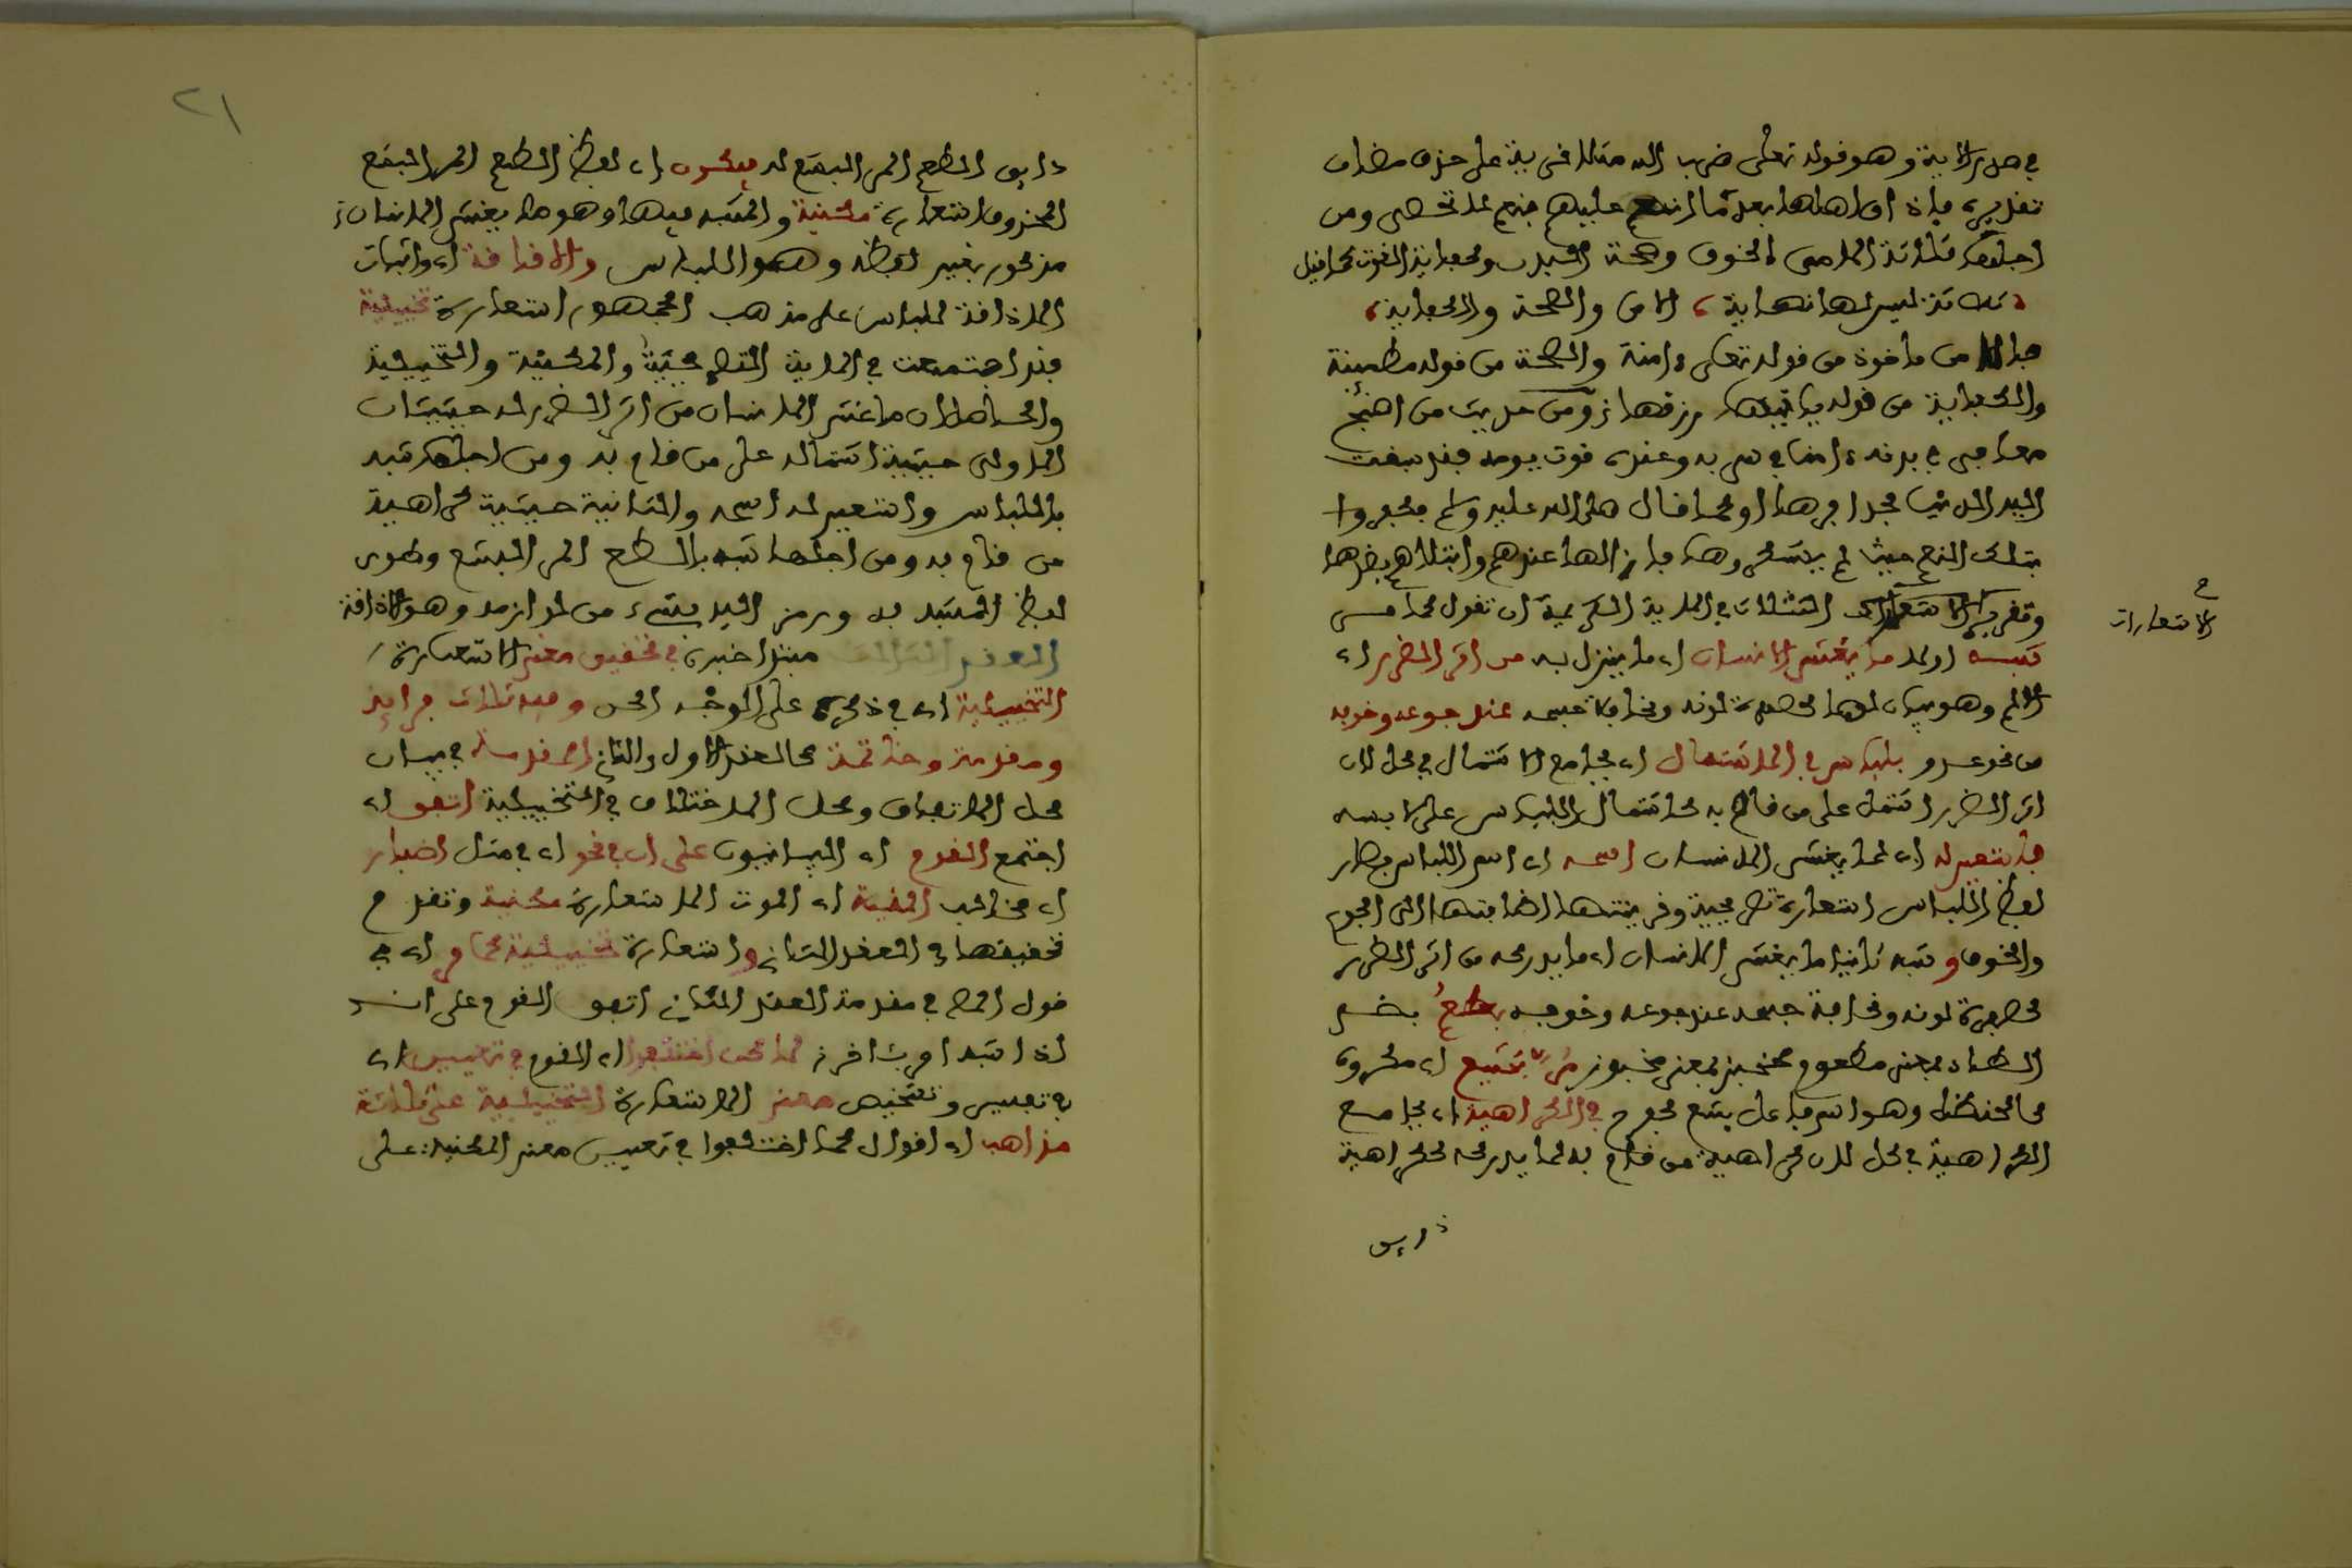 في صدر الاية وهو قوله تعلى ضرب الله مثلا قرية على حذف مضاف
تقديره فإذا اق اهلها بعد ما انعم عليهم بنعم لا تحصى ومن
اجلها ثلاثة الامن من الخوف وصحة البدن وكفاية القوت كما قيل
ثلاثة ليس لها نهاية، الامن والصحة والكفاية،
فالامن ماخوذ من قوله تعلى ءامنة والصحة من قوله مطمئنة
والكفاية من قوله ياتيها رزقها ومن حديث من اصبح
معافى في بدنه ءامنا في سربه وعنده قوت يومه فقد سيقت
اليه الدنيا بحذافرها او كما قال صلى الله عليه وسلم فكفروا
بتلك النعم حيث لم يشكروها فازالها عنهم وابتلاهم بضدها
وتقرير الاستعارات الثلاث في الاية الكريمة ان تقول كما مـ
ح
الاستعارات
شبه اولا ما يغشى الانسان اي ما ينزل به من اثر الضرر اي
الالم وهو بيان لهما كصفرة لونه ونحافة جسمه عند جوعه وخوفه
من نحو عدو بلباس في الاشتمال اي بجامع الاشتمال في كل لان
اثر الضرر اشتمل على من قام به كاشتمال اللباس على لابسه
فاستعير له اي لما يغشى الانسان اسمه اي اسم اللباس فصار
لفظ اللباس استعارة تصريحية وقرينتها اضافتها الى الجوع
والخوف وشبه ثانيا ما يغشى الانسان اي ما يدركه من اثر الضرر
كصفرة لونه ونحافة جسمه عند جوعه وخوفه بطعم بضم
الطاء بمعنى مطعوم كخبز بمعنى مخبوز مر بشيع اي مكروه
كالحنظل وهو اسم فاعل بشع كفرح في الكراهية اي بجامع
الكراهية في كل لان كراهية من قام به لما يدركه ككراهية
ذايق
٢١
ذايق الطعم المر البشع له فيكون اي لفظ الطعم المر البشع
المحذوف استعارة مكنية والمشبه فيها وهو ما يغشى الانسان
مذكور بغير لفظه وهو اللباس والاذاقة اي واثبات
الاذاقة للباس على مذهب الجمهور استعارة تخييلية
فقد اجتمعت في الاية التصريحية والمكنية والتخييلية
والحاصل ان ما غشى الانسان من اثر الضرر له حيثيتان
الاولى حيثية اشتماله على من قام به ومن اجلها شبه
باللباس واستعير له اسمه والثانية حيثية كراهية
من قام به ومن اجلها شبه بالطعم المر البشع وطوى
لفظ المشبه به ورمز اليه بشيء من لوازمه وهو الاذاقة
العقد الثالث مبتدا خبره في تحقيق معنى الاستعارة
التخييلية اي في ذكره على الوجه الحق وفيه ثلاث فرايد
ومقدمة وخاتمة كالعقد الاول والثاني المقدمة في بيان
محل الاتفاق ومحل الاختلاف في التخييلية اتفق اي
اجتمع القوم اي البيانيون على ان في نحو اي في مثل اظفار
اي مخالب المنية اي الموت استعارة مكنية وتقدم
تحقيقها في العقد الثاني واستعارة تخييلية كما مر اي في
قول المص في مقدمة العقد الثاني اتفق القوم على انه
اذا شبه امر بئاخر لكن اختلفوا اي القوم في تعيين اي
في تفسير وتشخيص معنى الاستعارة التخييلية على ثلاثة
مذاهب اي اقوال كما اختلفوا في تعيين معنى المكنية على